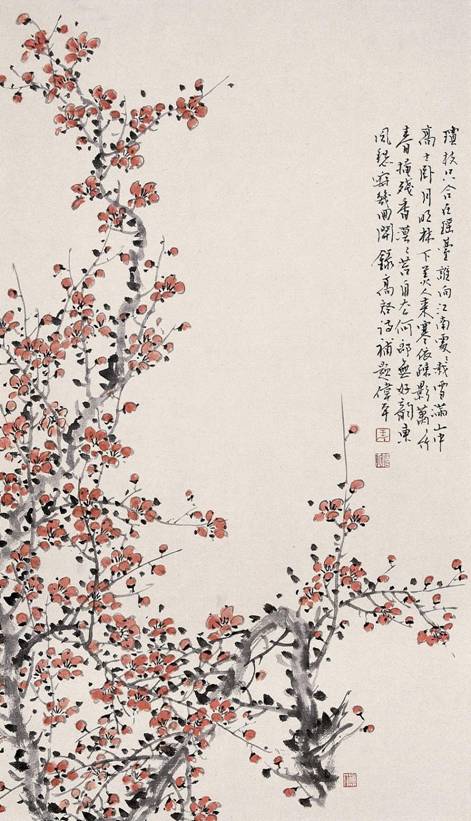 瓊枝只合在瑶臺誰向江南處々栽雪滿山中
高士卧月明林下美人来寒依疎影蕭々竹
春掩残香漠々苔自去何郎無好韵東
風愁寂幾回開錄高啓诗補題偉平